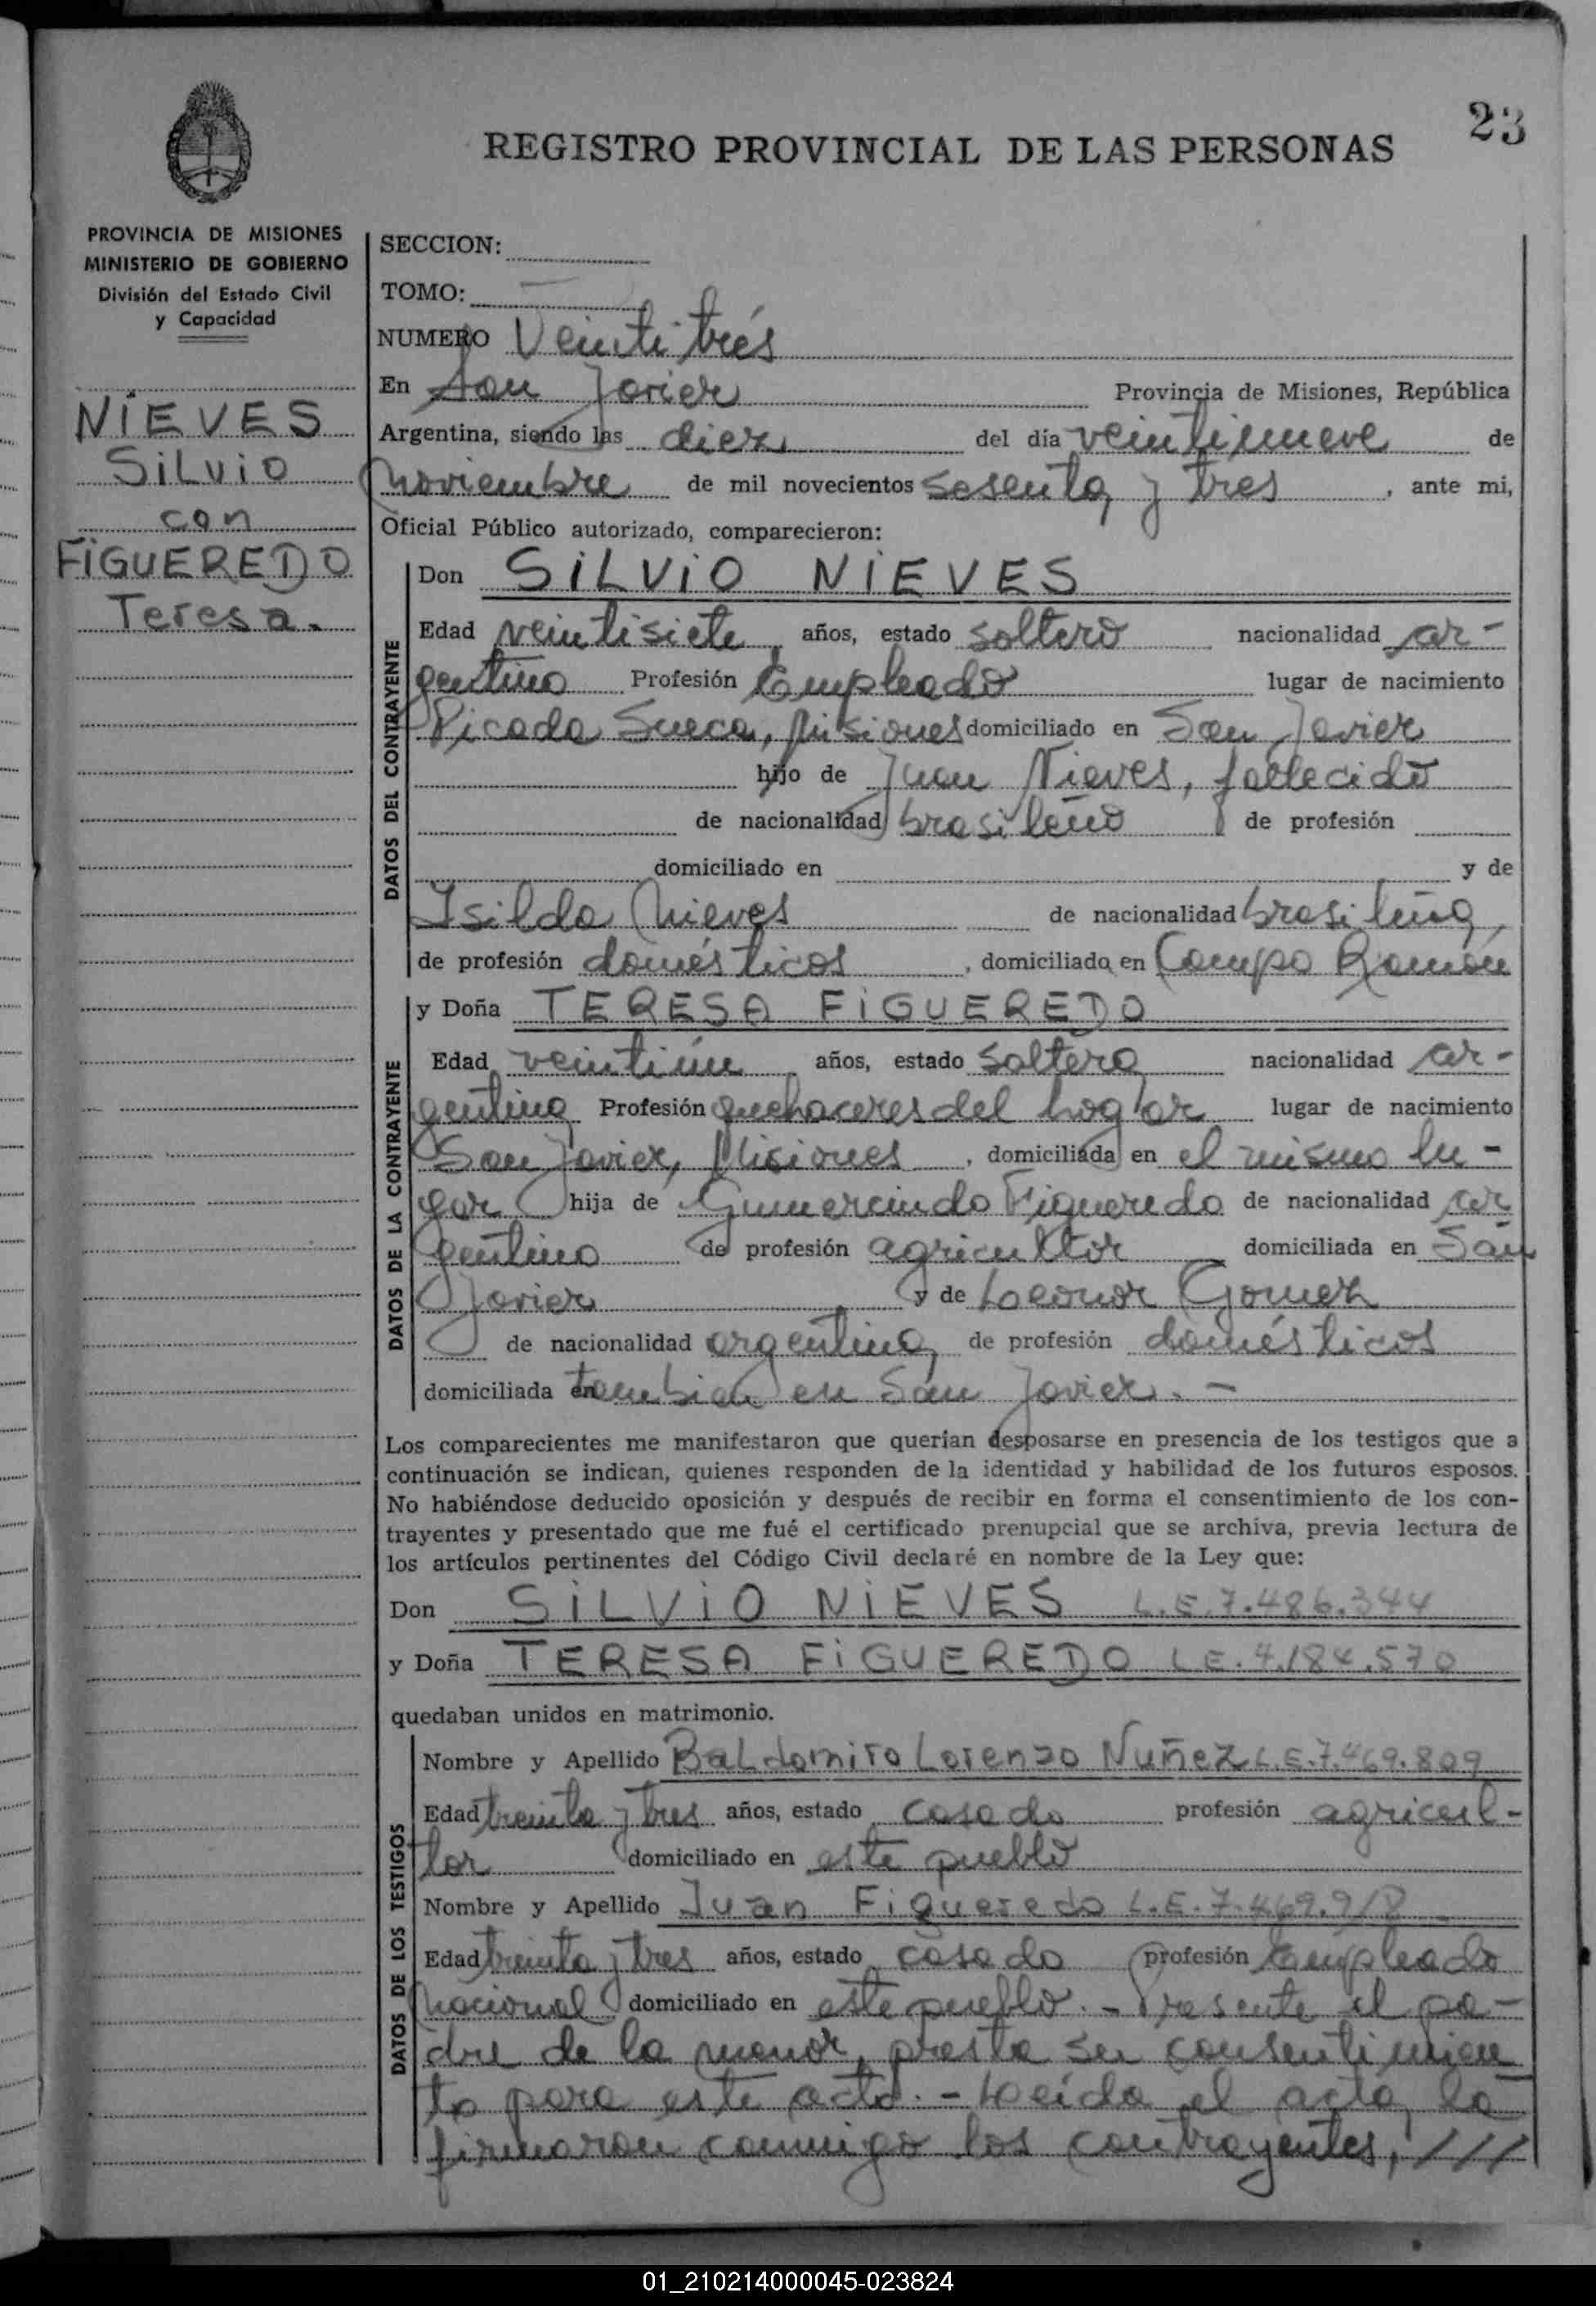 23
REGISTRO PROVINCIAL DE LAS PERSONAS
PROVINCIA DE MISIONES
MINISTERIO DE GOBIERNO
División del Estado Civil
y Capacidad
NIEVES
SILVIO
con
FIGUEREDO
Teresa.
SECCION:
TOMO: —
NUMERO Veinti trés
En San Javier Provincia de Misiones, República
Argentina, siendo las diez del día veintinueve de
noviembre de mil novecientos sesenta y tres, ante mi,
Oficial Público autorizado, comparecieron:
DATOS DEL CONTRAYENTE
Don SILVIO NIEVES
Edad veintisiete años, estado soltero nacionalidad ar-
gentino Profesión Empleado lugar de nacimiento
Picada Sueca, Misiones domiciliado en San Javier
hijo de Juan Nieves, fallecido
de nacionalidad brasileño de profesión
domiciliado en y de
Isilda Nieves de nacionalidad brasileña,
de profesión domésticos, domiciliado en Campo Ramón
DATOS DE LA CONTRAYENTE
y Doña TERESA FIGUEREDO
Edad veintiún años, estado soltera nacionalidad ar-
gentina Profesión quehaceres del hogar lugar de nacimiento
San Javier, Misiones, domiciliada en el mismo lu-
gar hija de Gumercindo Figueredo de nacionalidad ar
gentino de profesión agricultor domiciliada en San
Javier y de Leonor Gomez
de nacionalidad argentina, de profesión domésticos
domiciliada en tambien en San Javier. -
Los comparecientes me manifestaron que querían desposarse en presencia de los testigos que a
continuación se indican, quienes responden de la identidad y habilidad de los futuros esposos.
No habiéndose deducido oposición y después de recibir en forma el consentimiento de los con-
trayentes y presentado que me fué el certificado prenupcial que se archiva, previa lectura de
los artículos pertinentes del Código Civil declaré en nombre de la Ley que:
Don SILVIO NIEVES L.E. 7.486.344
y Doña TERESA FIGUEREDO L.E. 4.184.570
quedaban unidos en matrimonio.
DATOS DE LOS TESTIGOS
Nombre y Apellido Baldomiro Lorenzo Nuñez L.E. 7.469.809
Edad treinta y tres años, estado casado profesión agricul-
tor domiciliado en este pueblo
Nombre y Apellido Juan Figueredo L.E. 7.469.918
Edad treinta y tres años, estado casado profesión Empleado
nacional domiciliado en este pueblo. - Presente el pa-
dre de la menor, presta su consentimien
to para este acto. - Leída el acta, la
firmaron conmigo los contrayentes, ///
01_210214000045-023824